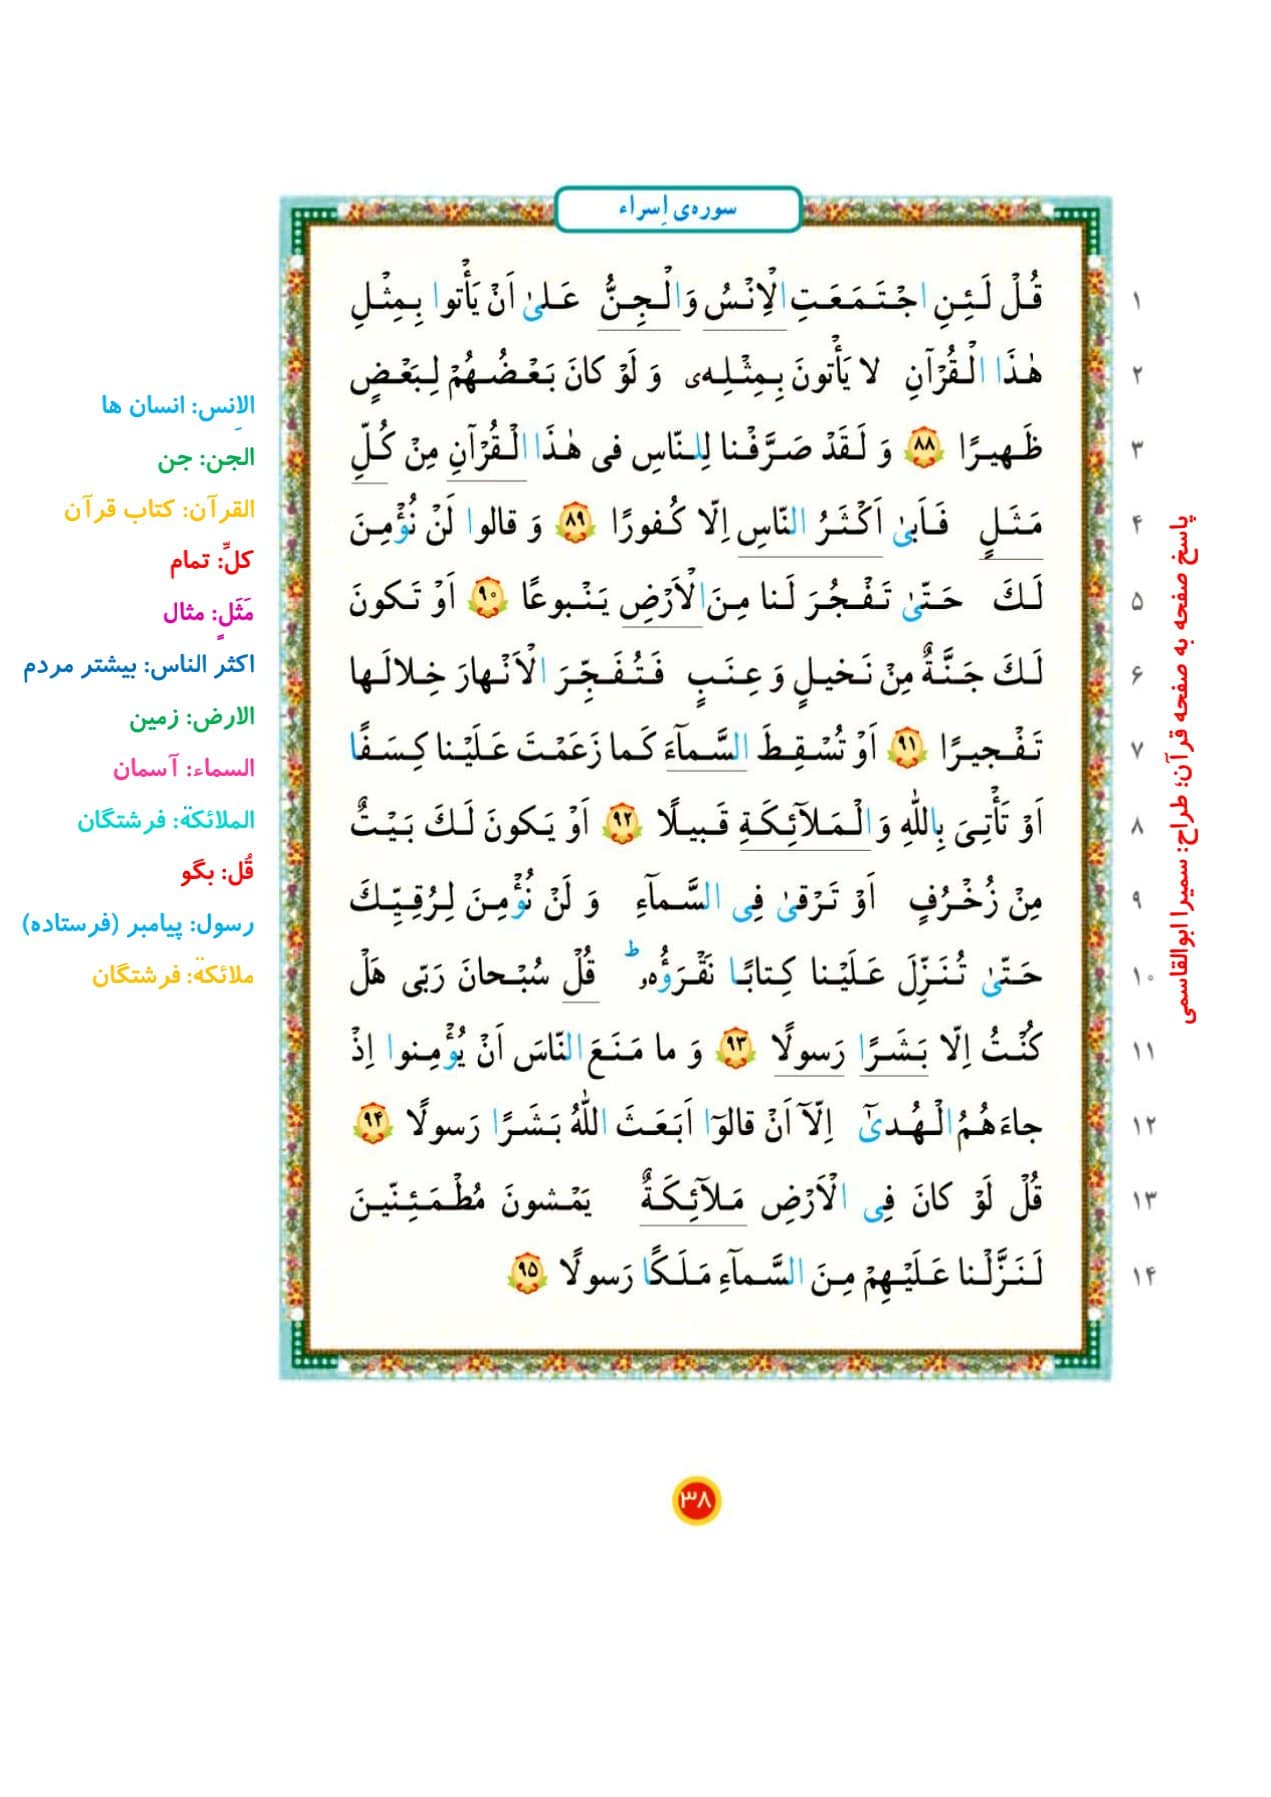 سوره‌ی اِسراء
قُلْ لَئِنِ اجْتَمَعَتِ الْاِنْسُ وَالْجِنُّ عَلىٰ اَنْ يَأْتوا بِمِثْلِ ۱
هٰذَا الْقُرْآنِ لا يَأْتونَ بِمِثْلِهى وَ لَوْ كانَ بَعْضُهُمْ لِبَعْضٍ ۲
ظَهيرًا ۸۸ وَ لَقَدْ صَرَّفْنا لِلنّاسِ فى هٰذَا الْقُرْآنِ مِنْ كُلِّ ۳
مَثَلٍ فَاَبىٰ اَكْثَرُ النّاسِ اِلّا كُفورًا ۸۹ وَ قالوا لَنْ نُؤْمِنَ ۴
لَكَ حَتّىٰ تَفْجُرَ لَنا مِنَ الْاَرْضِ يَنْبوعًا ۹۰ اَوْ تَكونَ ۵
لَكَ جَنَّةٌ مِنْ نَخيلٍ وَ عِنَبٍ فَتُفَجِّرَ الْاَنْهارَ خِلالَها ۶
تَفْجيرًا ۹۱ اَوْ تُسْقِطَ السَّمآءَ كَما زَعَمْتَ عَلَيْنا كِسَفًا ۷
اَوْ تَأْتِىَ بِاللّٰهِ وَ الْمَلآئِكَةِ قَبيلًا ۹۲ اَوْ يَكونَ لَكَ بَيْتٌ ۸
مِنْ زُخْرُفٍ اَوْ تَرْقىٰ فِى السَّمآءِ وَ لَنْ نُؤْمِنَ لِرُقِيِّكَ ۹
حَتّىٰ تُنَزِّلَ عَلَيْنا كِتابًا نَقْرَؤُهۥ ط قُلْ سُبْحانَ رَبّى هَلْ ۱۰
كُنْتُ اِلّا بَشَرًا رَسولًا ۹۳ وَ ما مَنَعَ النّاسَ اَنْ يُؤْمِنوا اِذْ ۱۱
جاءَهُمُ الْهُدىٰٓ اِلّآ اَنْ قالوٓا اَبَعَثَ اللّٰهُ بَشَرًا رَسولًا ۹۴ ۱۲
قُلْ لَوْ كانَ فِى الْاَرْضِ مَلآئِكَةٌ يَمْشونَ مُطْمَئِنّينَ ۱۳
لَنَزَّلْنا عَلَيْهِمْ مِنَ السَّمآءِ مَلَكًا رَسولًا ۹۵ ۱۴
الاِنس: انسان ها
الجن: جن
القرآن: کتاب قرآن
کلِّ: تمام
مَثَلٍ: مثال
اکثر الناس: بیشتر مردم
الارض: زمین
السماء: آسمان
الملائکة: فرشتگان
قُل: بگو
رسول: پیامبر (فرستاده)
ملائکة: فرشتگان
پاسخ صفحه به صفحه قرآن؛ طراح: سمیرا ابوالقاسمی
۳۸